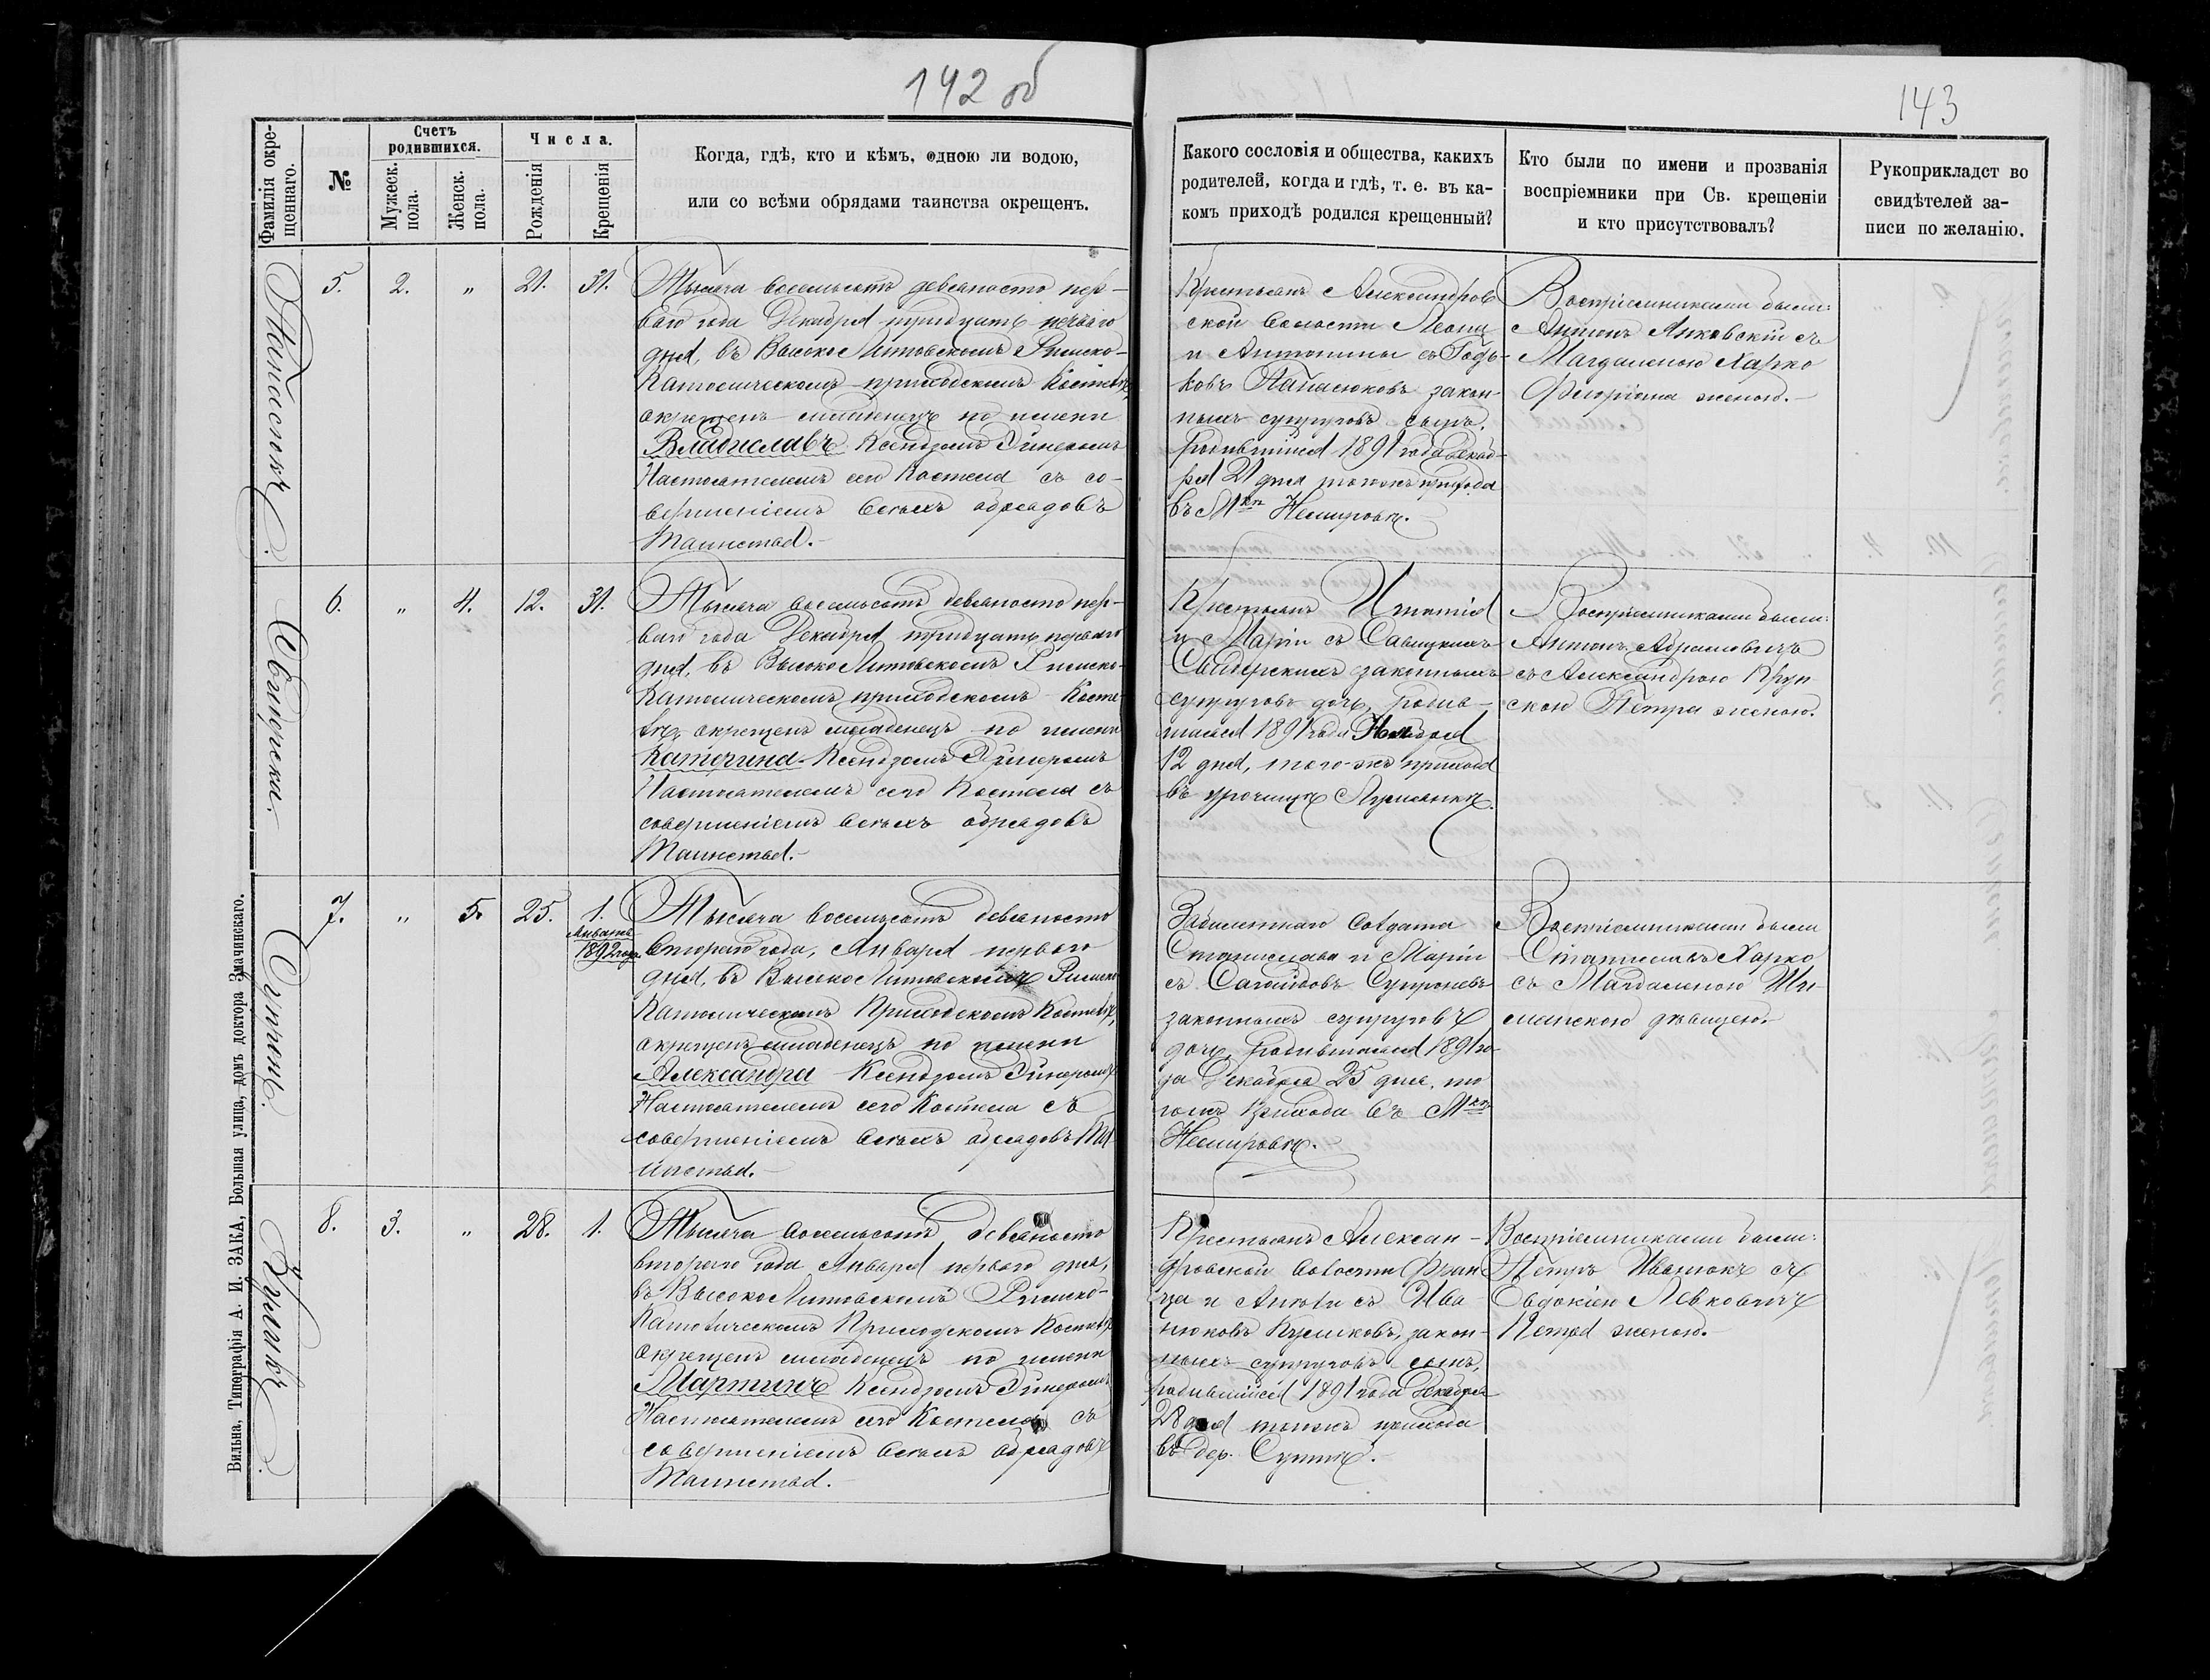 142 об
143
Фамилія окре-
щеннаго.
№
Счетъ
родившихся.
Мужеск.
пола.
Женск.
пола.
Числа.
Рожденія
Крещенія
Когда, гдѣ, кто и кѣмъ, одною ли водою,
или со всѣми обрядами таинства окрещенъ.
Какого сословія и общества, какихъ
родителей, когда и гдѣ, т. е. въ ка-
комъ приходѣ родился крещенный?
Кто были по имени и прозванія
воспріемники при Св. крещеніи
и кто присутствовалъ?
Рукоприкладст во
свидѣтелей за-
писи по желанію.
Панасюкъ.
5. 2. " 21. 31.
Тысяча восемьсотъ девяносто пер-
ваго года Декабря тридцать перваго
дня, въ Высоко Литовскомъ Римско-
Католическомъ приходскомъ Костелѣ,
окрещенъ младенецъ по имени
Владиславъ Ксендзомъ
Настоятелемъ сего Костела съ со-
вершеніемъ всѣхъ обрядовъ
Таинства.-
Крестьянъ Александров
ской волости Леона
и Антонины съ
ковъ Панасюковъ закон-
ныхъ супруговъ сынъ,
родившійся 1891 года Декаб-
ря 21 дня тогожъ прихода
въ Мкѣ Немировѣ.-
Воспріемниками были:
Антонъ Янковскій съ
Магдаленою Харко
Флоріана женою.-
Свидерска.
6. " 4. 12. 31.
Тысяча восемьсотъ девяносто пер-
ваго года Декабря тридцать перваго
дня, въ Высоко Литовскомъ Римско-
Католическомъ приходскомъ Косте-
лѣ, окрещенъ младенецъ по имени
Катерина Ксендзомъ
Настоятелемъ сего Костела съ
совершеніемъ всѣхъ обрядовъ
Таинства.-
Крестьянъ Игнатія
и Маріи съ Савицкихъ
Свидерскихъ законныхъ
супруговъ дочь, родив-
шаяся 1891 года Ноября
12 дня, того-жъ прихода
въ урочищѣ
Воспріемниками были:
Антонъ Абрамовичъ
съ Александрою Круп
скою Петра женою.
Супронъ.
7. " 5. 25. 1.
Января
1892 года.
Тысяча восемьсотъ девяносто
втораго года, Января перваго
дня, въ Высоко Литовскомъ Римско
Католическомъ Приходскомъ Костелѣ,
окрещенъ младенецъ по имени
Александра Ксендзомъ
Настоятелемъ сего Костела съ
совершеніемъ всѣхъ обрядовъ Та-
инства.-
Забилетнаго Солдата
Станислава и Маріи
съ Супроновъ
законныхъ супруговъ
дочь, родившаяся 1891 го-
да Декабря 25 дня, то
гожъ прихода въ Мкѣ
Немировѣ.-
Воспріемниками были
Станиславъ Харко
съ Магдаленою Ши
манскою дѣвицею.
Кумикъ.
8. 3. " 28. 1.
Тысяча восемьсотъ девяносто
втораго года Января перваго дня,
въ Высоко Литовскомъ Римско-
Католическомъ Приходскомъ Костелѣ
окрещенъ младенецъ по имени
Мартинъ Ксендзомъ
Настоятелемъ сего Костела съ
совершеніемъ всѣхъ обрядовъ
Таинства.-
Крестьянъ Алексан-
дровской волости Фран
ца и Анели съ Ива
нюковъ Кумиковъ, закон-
ныхъ супруговъ сынъ,
родившійся 1891 года Декабря
28 дня тогожъ прихода
въ дер.
Воспріемниками были:
Петръ Иванюкъ съ
Евдокіею Левковичъ
Петра женою.-
Вильна, Типографія А. И. ЗАКА, Большая улица, домъ доктора Змачинскаго.